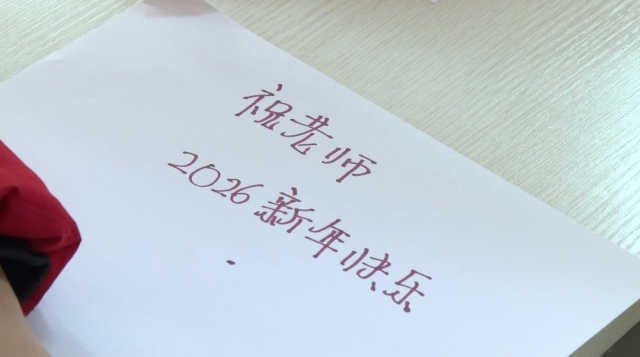 祝老师
2026新年快乐
.